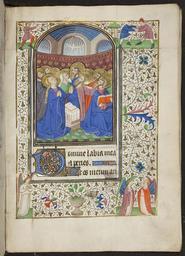 Domine labia mea
aperies.
et os meum an